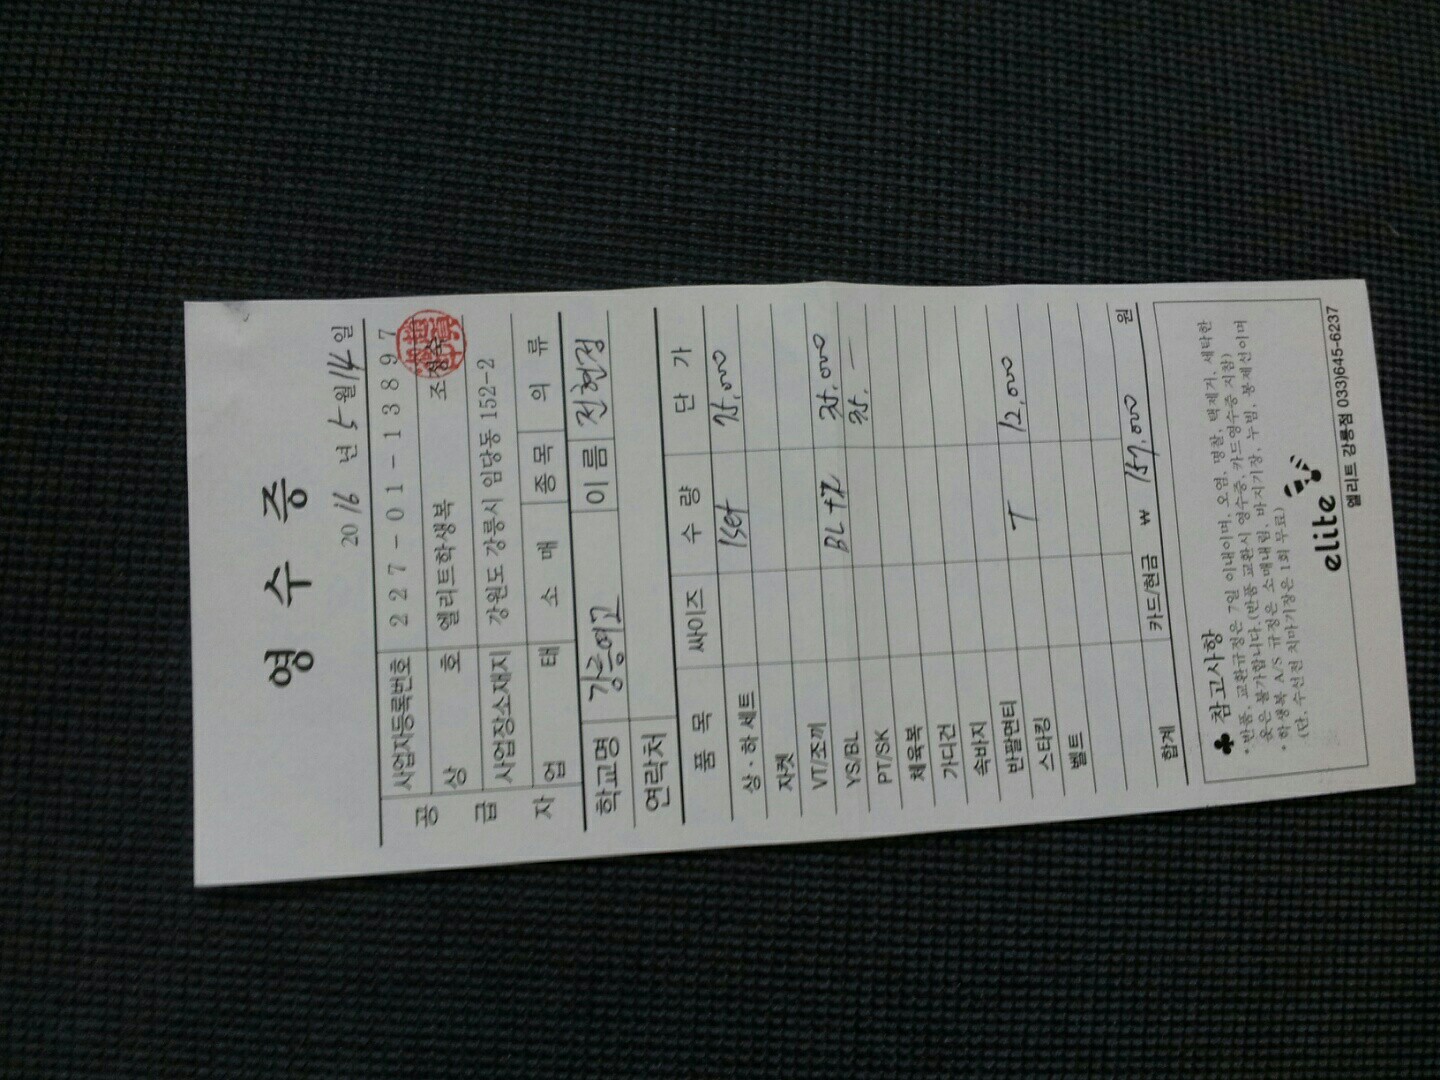 영 수 증
2016 년 5 월 14 일
공 급 자
사업자등록번호 227-01-13897
상 호 엘리트학생복 조정숙
사업장소재지 강원도 강릉시 임당동 152-2
업 태 소 매 종 목 의 류
학교명 강릉여고 이 름 전현정
연락처
품 목 싸이즈 수 량 단 가
상·하세트 1set
자켓
VT/조끼 BL
YS/BL
PT/SK
체육복
가디건
속바지
반팔면티 T 12,000
스타킹
벨트
합계 카드/현금 ₩ 157,000 원
♣ 참고사항
* 반품, 교환규정은 7일 이내이며, 오염, 명찰, 택제거, 세탁한
옷은 불가합니다.(반품 교환시 영수증,카드영수증 지참)
* 학생복 A/S 규정은 소매내림, 바지기장, 누빔, 봉제선이며
(단, 수선전 치마기장은 1회 무료)
elite
엘리트 강릉점 033)645-6237